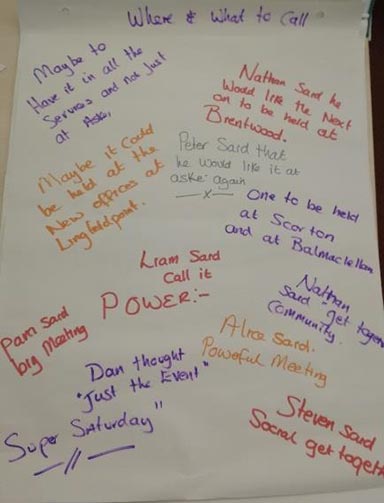 Where & What to Call
Maybe to
Have it in all the
Services and not Just
at Aske,
Nathan Said he
Would like the Next
on to be held at
Brentwood.
Maybe it Could
be held at the
New offices at
Lingfieldpoint.
Peter Said that
he would like it at
aske again
—x—
One to be held
at Scorton
and at Balmaclellan
Liam Said
Call it
POWER:-
Nathan
Said "get togeth
Community.
Pam Said
big Meeting
Alice Said.
Powerful Meeting
Dan thought
"Just the Event"
Super Saturday"
—//—
Steven Said
Social get togeth